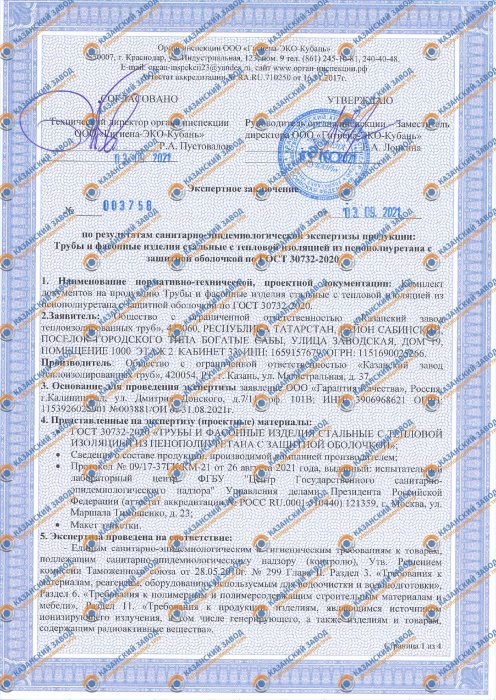 Орган инспекции ООО «Гигиена-ЭКО-Кубань»
350007, г. Краснодар, ул. Индустриальная, 123, пом. 9 тел. (861) 245-10-81, 240-40-48.
E-mail: organ-inspekcii23@yandex.ru, сайт www.орган-инспекции.рф
Аттестат аккредитации № RA.RU.710250 от 16.11.2017г.
СОГЛАСОВАНО УТВЕРЖДАЮ
Технический директор органа инспекции Руководитель органа инспекции – Заместитель
ООО «Гигиена-ЭКО-Кубань» директора ООО «Гигиена-ЭКО-Кубань»
Р.А. Пустовалов Е.А. Лоркина
03.09.2021
Экспертное заключение
№ 003758 03.09.2021
по результатам санитарно-эпидемиологической экспертизы продукции:
Трубы и фасонные изделия стальные с тепловой изоляцией из пенополиуретана с
защитной оболочкой по ГОСТ 30732-2020
1. Наименование нормативно-технической, проектной документации: Комплект
документов на продукцию Трубы и фасонные изделия стальные с тепловой изоляцией из
пенополиуретана с защитной оболочкой по ГОСТ 30732-2020.
2.Заявитель: Общество с ограниченной ответственностью «Казанский завод
теплоизолированных труб», 422060, РЕСПУБЛИКА ТАТАРСТАН, РАЙОН САБИНСКИЙ,
ПОСЕЛОК ГОРОДСКОГО ТИПА БОГАТЫЕ САБЫ, УЛИЦА ЗАВОДСКАЯ, ДОМ 19,
ПОМЕЩЕНИЕ 1000 ЭТАЖ 2 КАБИНЕТ 3, ИНН: ОГРН: 1151690025266.
Производитель: Общество с ограниченной ответственностью «Казанский завод
теплоизолированных труб», 420054, РТ, г. Казань, ул. Материальная, д. 37.
3. Основание для проведения экспертизы заявление ООО «Гарантия качества», Россия,
г.Калининград, ул. Дмитрия Донского, д.7/11, оф. 101В; ИНН 3906968621 ОГРН
1153926025901 №003881/ОИ от 31.08.2021г.
4. Представленные на экспертизу (проектные) материалы:
• ГОСТ 30732-2020 «ТРУБЫ И ФАСОННЫЕ ИЗДЕЛИЯ СТАЛЬНЫЕ С ТЕПЛОВОЙ
ИЗОЛЯЦИЕЙ ИЗ ПЕНОПОЛИУРЕТАНА С ЗАЩИТНОЙ ОБОЛОЧКОЙ»;
• Сведения о составе продукции, производимой компанией производителем;
• Протокол № 09/17-37П/КМ-21 от 26 августа 2021 года, выданный: испытательный
лабораторный центр ФГБУ "Центр Государственного санитарно-
эпидемиологического надзора" Управления делами Президента Российской
Федерации (аттестат аккредитации № РОСС RU.0001.510440) 121359, г. Москва, ул.
Маршала Тимошенко, д. 23;
• Макет этикетки.
5. Экспертиза проведена на соответствие:
Единым санитарно-эпидемиологическим и гигиеническим требованиям к товарам,
подлежащим санитарно-эпидемиологическому надзору (контролю), Утв. Решением
Комиссии Таможенного союза от 28.05.2010г. № 299 Глава II. Раздел 3. «Требования к
материалам, реагентам, оборудованию, используемым для водоочистки и водоподготовки»,
Раздел 6. «Требования к полимерным и полимерсодержащим строительным материалам и
мебели», Раздел 11. «Требования к продукции, изделиям, являющимся источником
ионизирующего излучения, в том числе генерирующего, а также изделиям и товарам,
содержащим радиоактивные вещества».
Страница 1 из 4
КАЗАНСКИЙ ЗАВОД